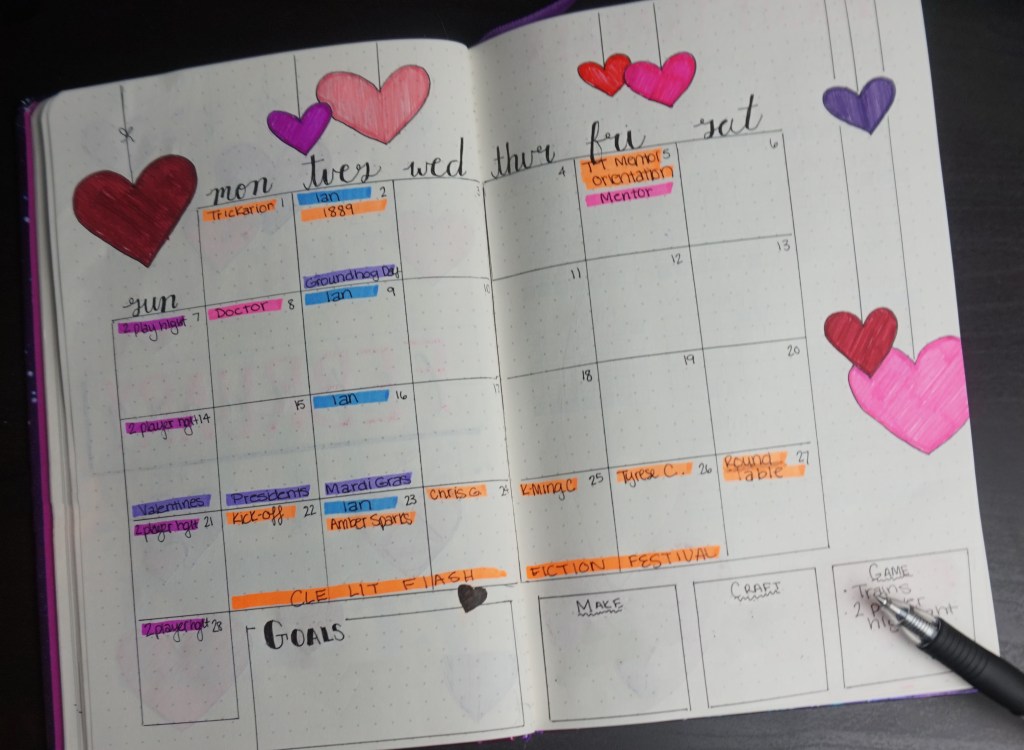 mon tues wed thur fri sat
Trickarion 1
Ian 2
1889
Groundhog Day
3
4
14 Mentors 5
orientation
Mentor
6
sun
2 play night 7
Doctor 8
Ian 9
10
11
12
13
2 player nght 14
Valentines
15
Presidents
Ian 16
Mardi Gras
17
18
19
20
2 player nght 21
Kick-off 22
Ian 23
Amber Sparks
Chris G. 24
K-Ming C 25
Tyrese C.. 26
Round 27
Table
CLE LIT FLASH FICTION FESTIVAL
2 player nght 28
GOALS
MAKE
CRAFT
GAME
· Trains
2 player
night